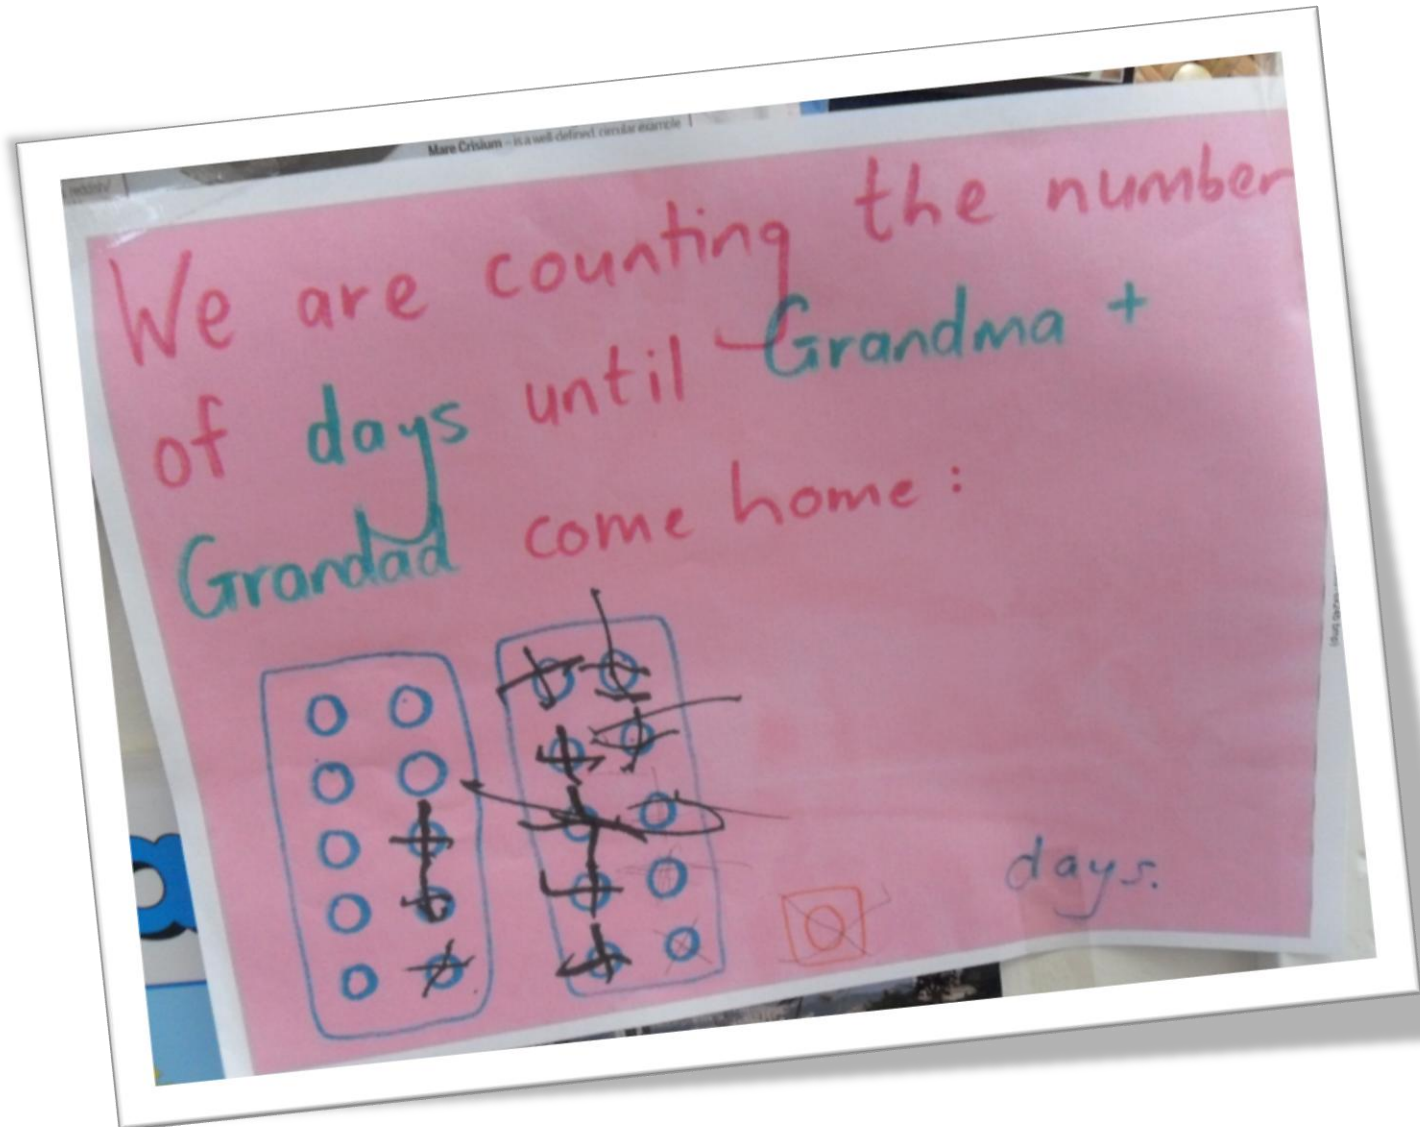 Mare Crisium – is a well-defined, circular example
We are counting the number
of days until Grandma +
Grandad come home:
days.